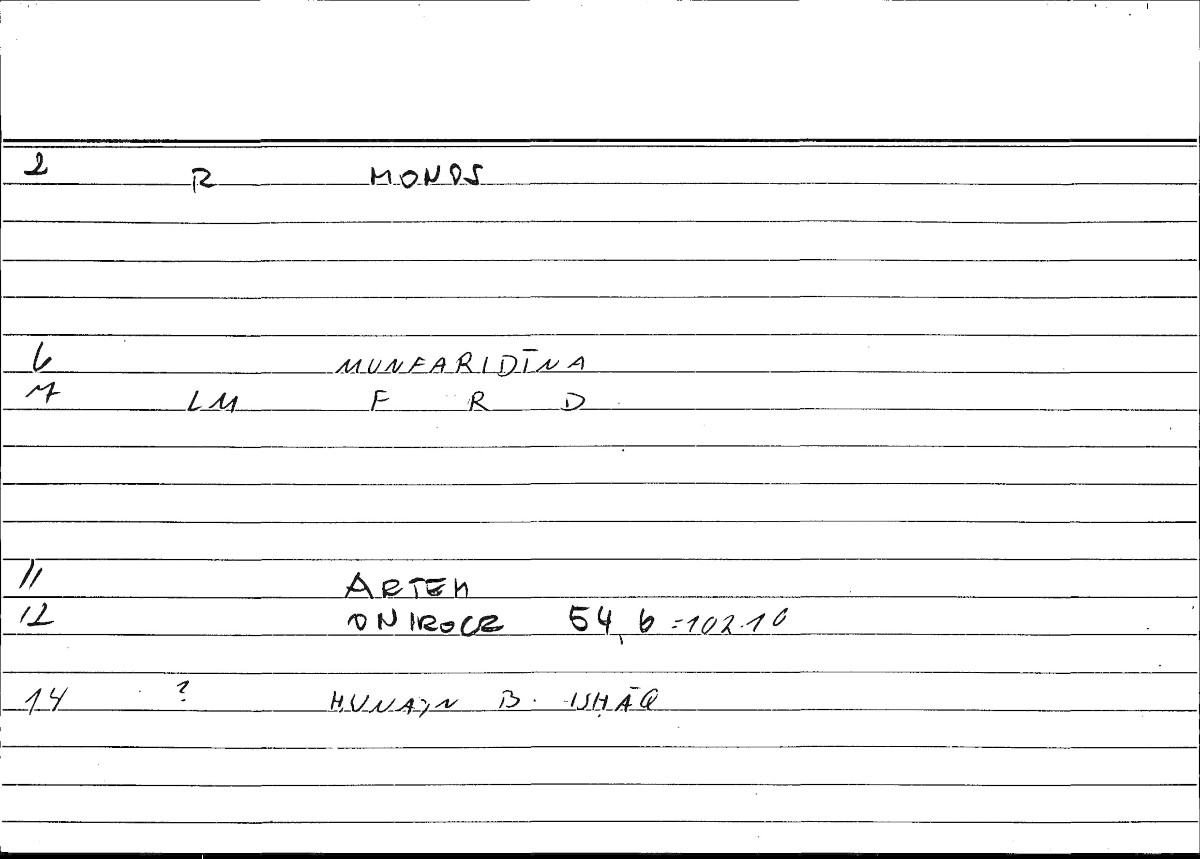 2 R MONOS
6 MUNFARIDĪNA
7 LM F R D
11 ARTEM
12 ONIROCR 54,6 =102.10
14 ? ḤUNAYN B. ISḤĀQ